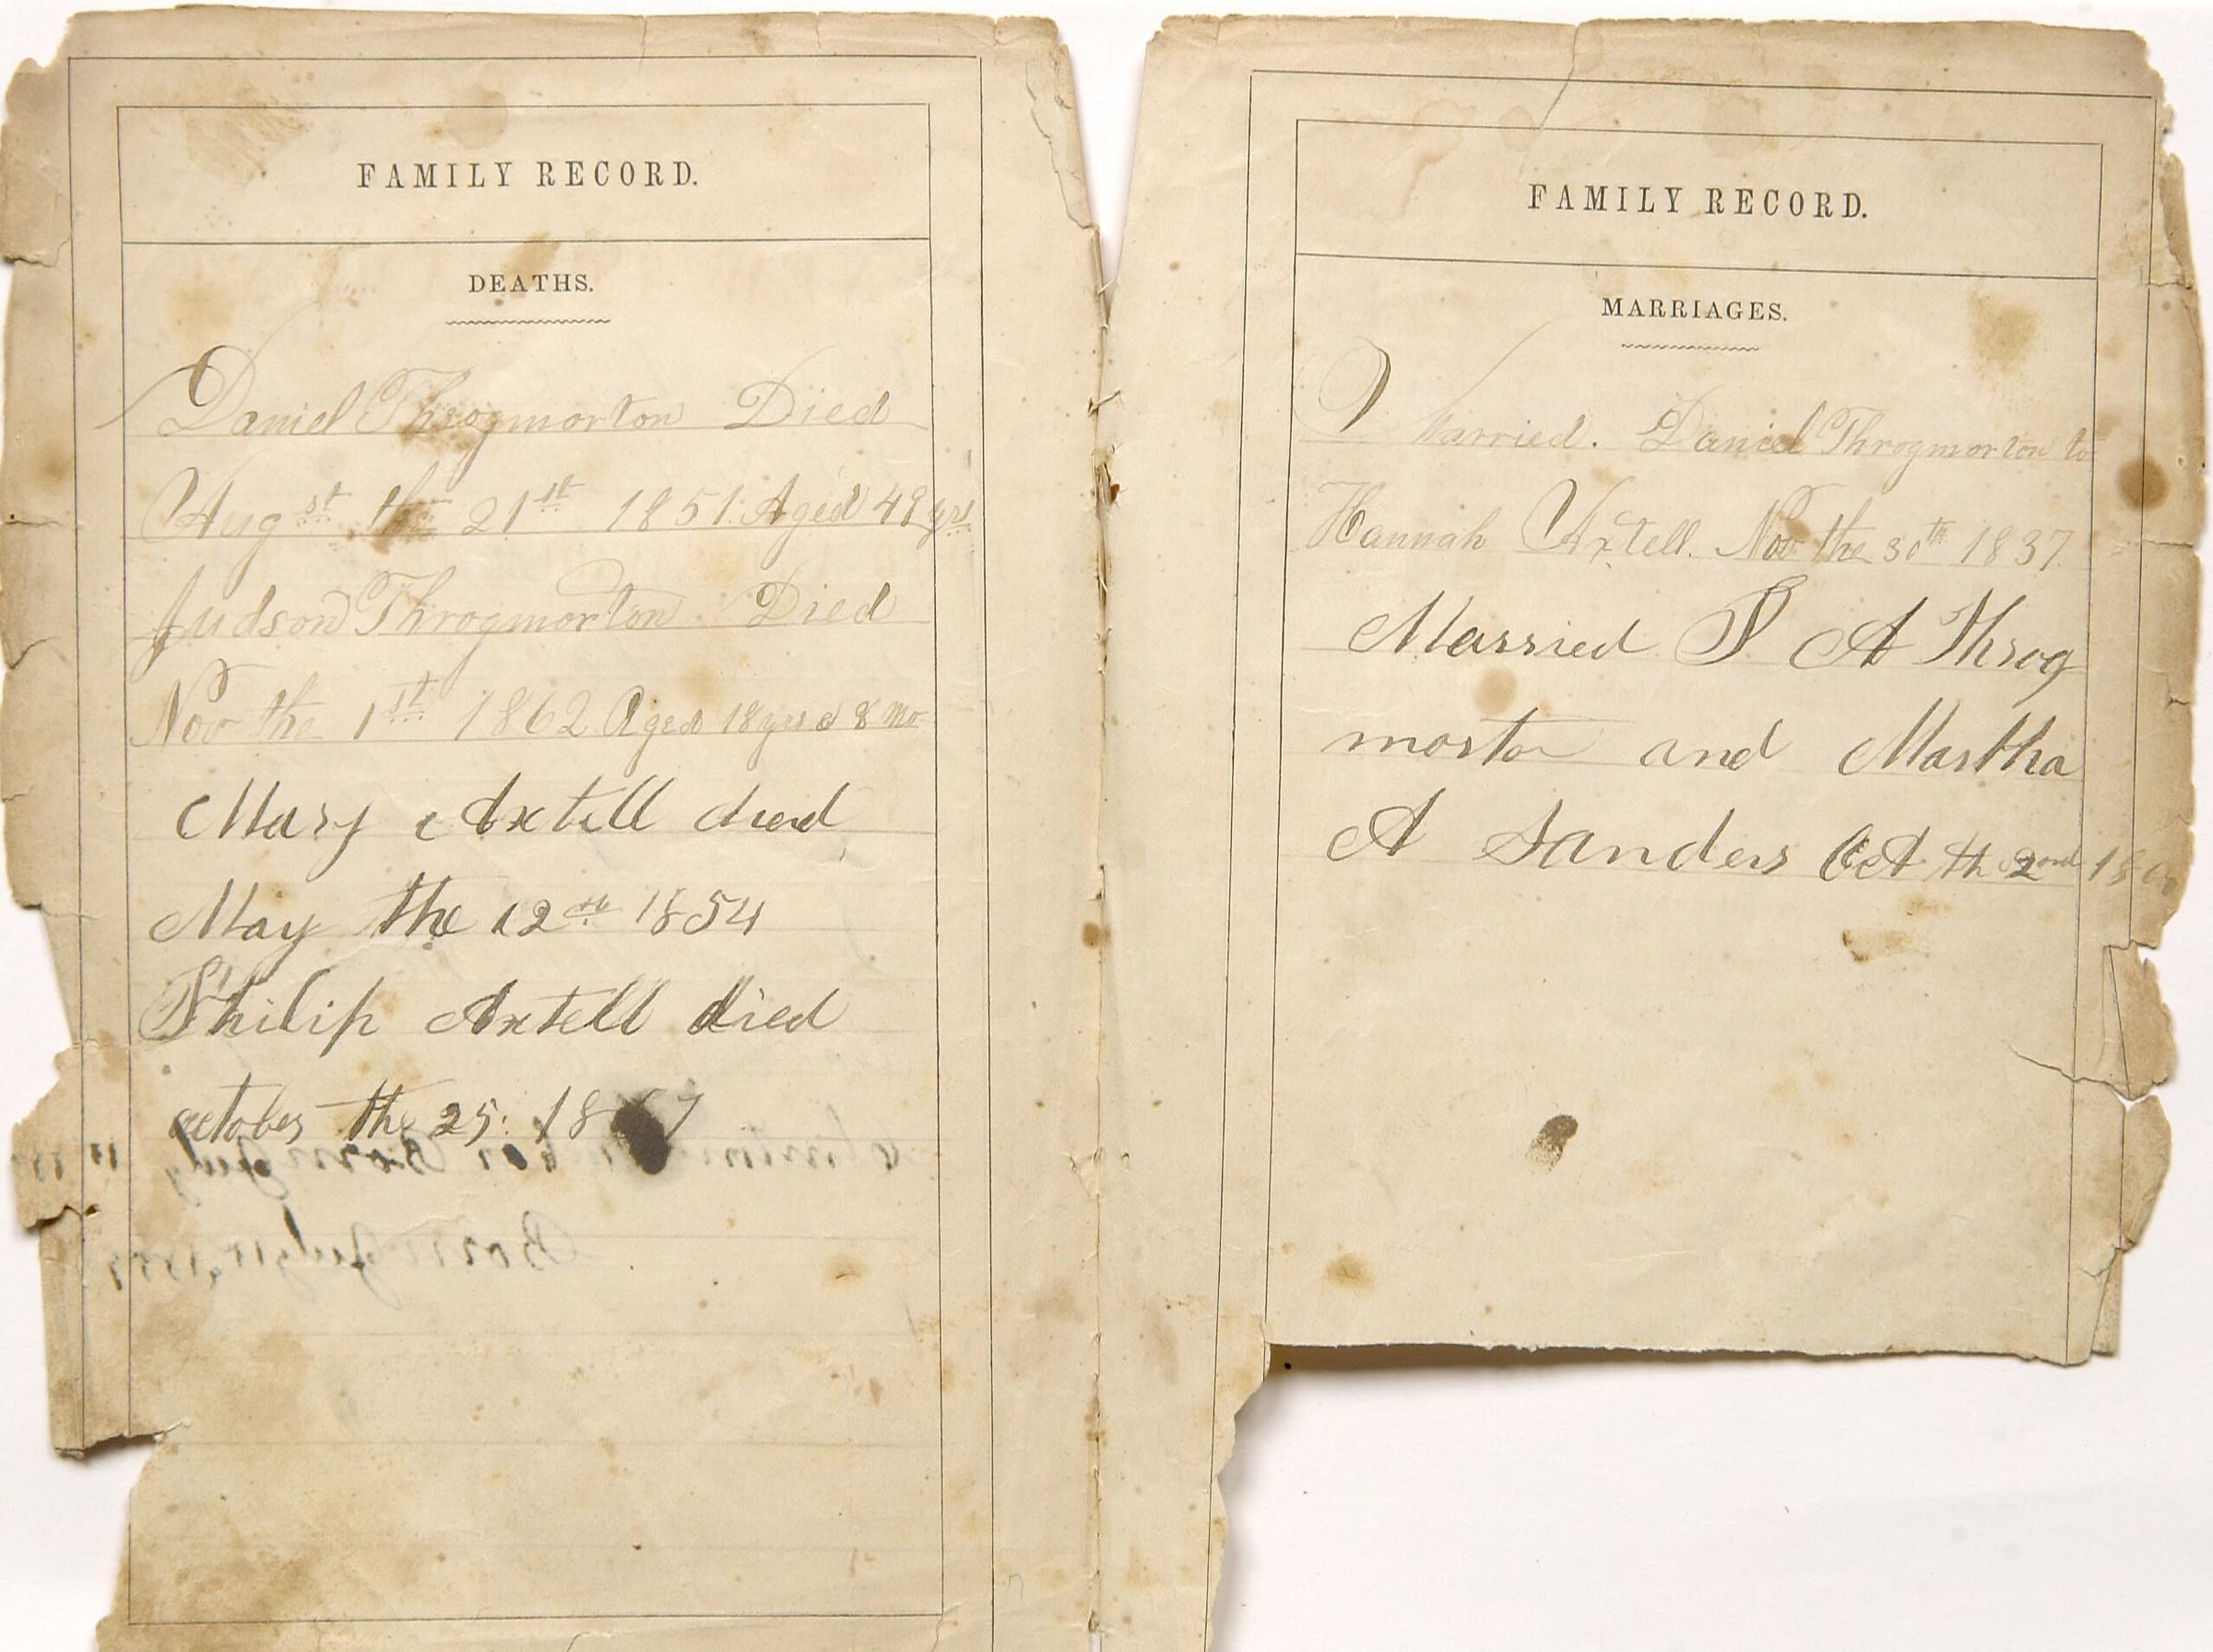 FAMILY RECORD.
DEATHS.
Daniel Throgmorton Died
Augst the 21st 1851. Aged 48 yrs
Judson Throgmorton Died
Nov the 1st 1862 Aged 18 yrs & 8 mo
Mary Axtell died
May the 12th 1854
Philip Axtell died
october the 25: 18 7
Born July
Born July
FAMILY RECORD.
MARRIAGES.
Married. Daniel Throgmorton to
Hannah Axtell. Nov the 30th 1837.
Married P A Throg
morton and Martha
A Sanders Oct th 2ond